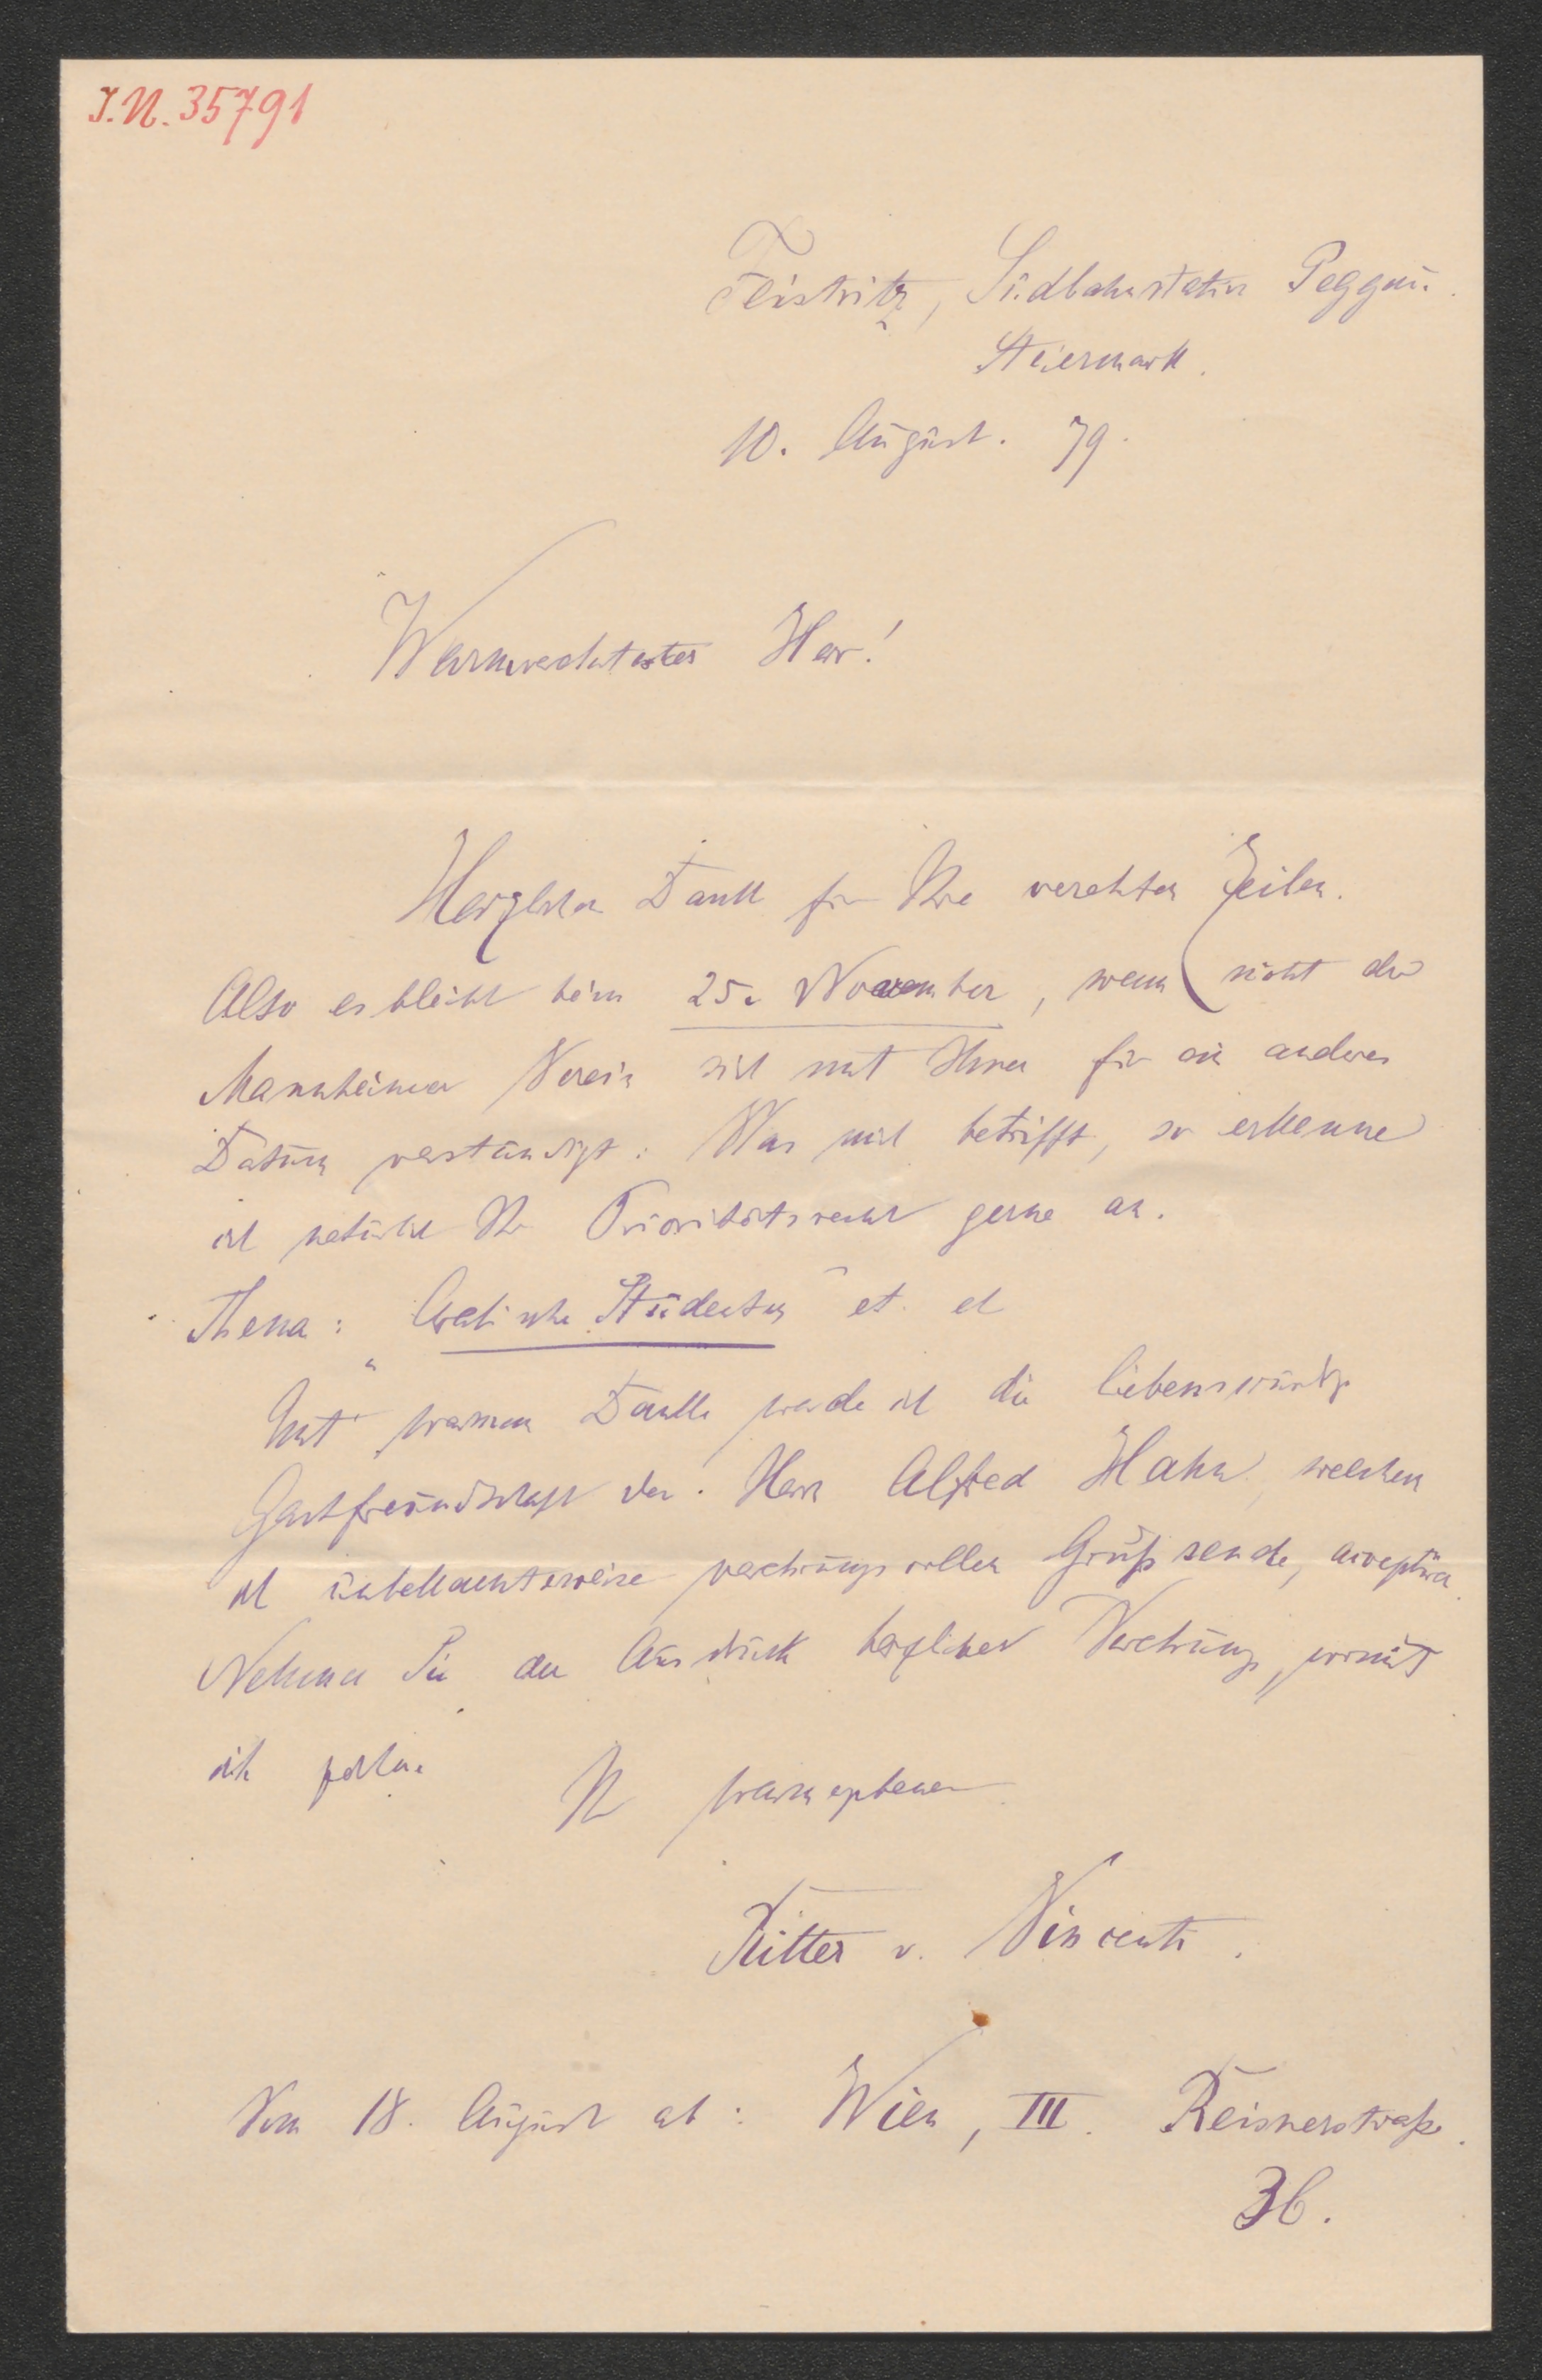 I.N. 35791
Feistritz, Südbahnstation Peggau.
Steiermark.
10. August. 79.
Warmverehrtester Herr!
Herzlichen Dank für Ihre verehrten Zeilen.
Also es bleibt beim 25. November, wenn nicht der
Mannheimer Verein sich mit Ihnen für ein anderes
Datum verständigt. Was mich betrifft, so erkenne
ich natürlich Ihr Prioritätsrecht gerne an.
Thema: „ Studenten“ et.
Mit warmem Danke werde ich die liebenswürdige
Gastfreundschaft des Herrn Alfred Hahn, welchem
ich unbekannterweise verehrungsvollen Gruß sende, acceptiren.
Nehmen Sie den Ausdruck herzlicher Verehrung, womit
ich zeichne.
Ihr warmergebener
Ritter v. Vincenti.
Vom 18. August ab: Wien, III. Reisnerstraße.
36.